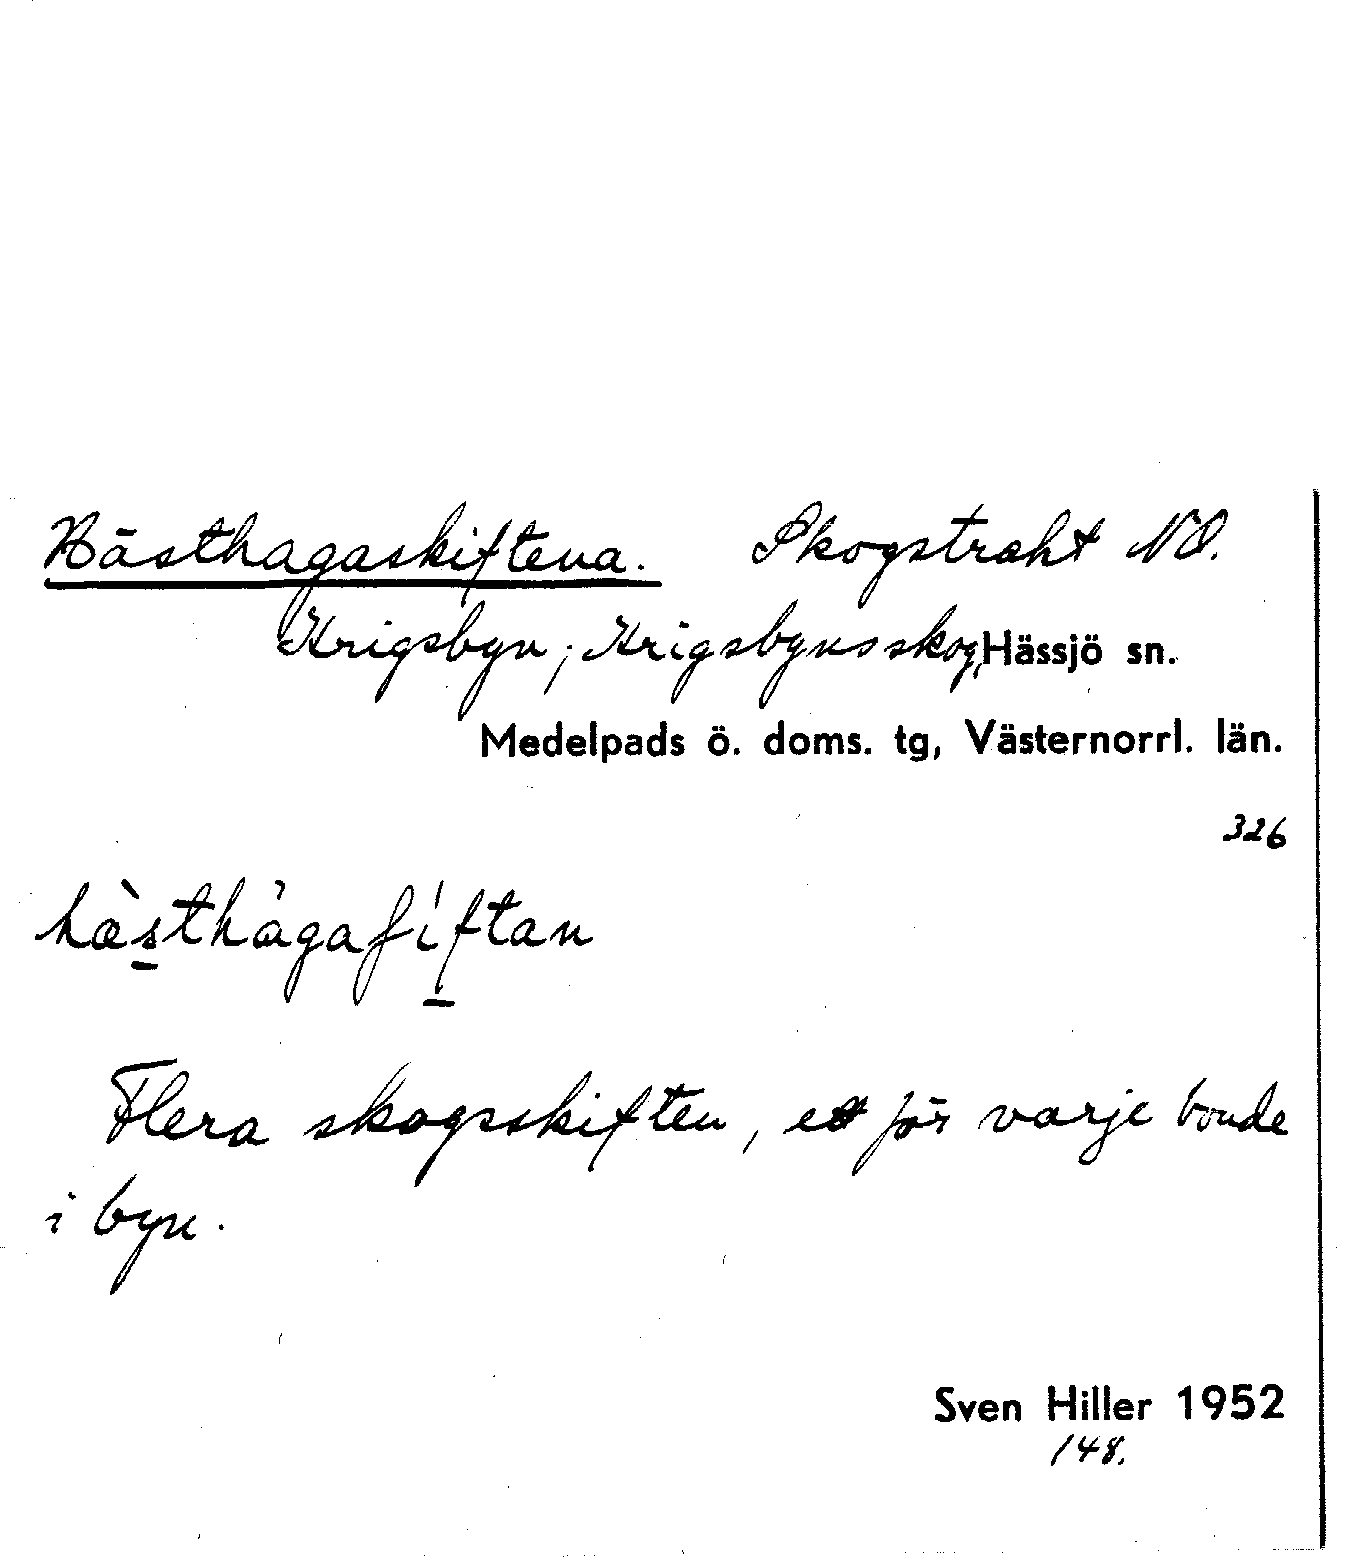 Hästhagaskiftena. Skogstrakt NO.
Krigsbyn; Krigsbynsskog, Hässjö sn.
Medelpads ö. doms. tg, Västernorrl. län.
326
hæ̀sthàgaʃiftan
Flera skogsskiften, ett för varje bonde
i byn.
Sven Hiller 1952
148.